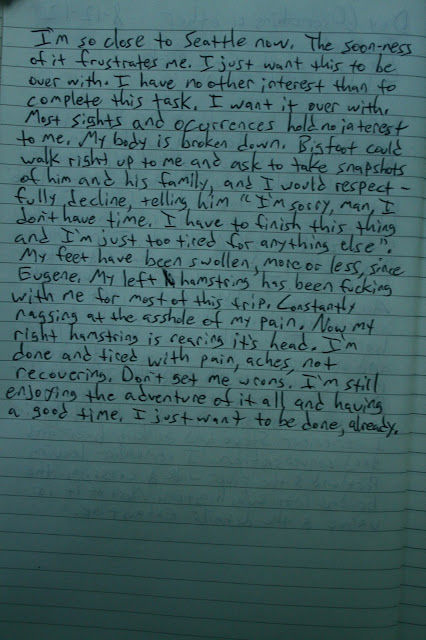 I'm so close to Seattle now. The soon-ness
of it frustrates me. I just want this to be
over with. I have no other interest than to
complete this task. I want it over with.
Most sights and ocurrences hold no interest
to me. My body is broken down. Bigfoot could
walk right up to me and ask to take snapshots
of him and his family, and I would respect-
fully decline, telling him "I'm sorry, man, I
don't have time. I have to finish this thing
and I'm just too tired for anything else".
My feet have been swollen, more or less, since
Eugene. My left hamstring has been fucking
with me for most of this trip. Constantly
nagging at the asshole of my pain. Now my
right hamstring is rearing it's head. I'm
done and tired with pain, aches, not
recovering. Don't get me wrong. I'm still
enjoying the adventure of it all and having
a good time. I just want to be done, already.